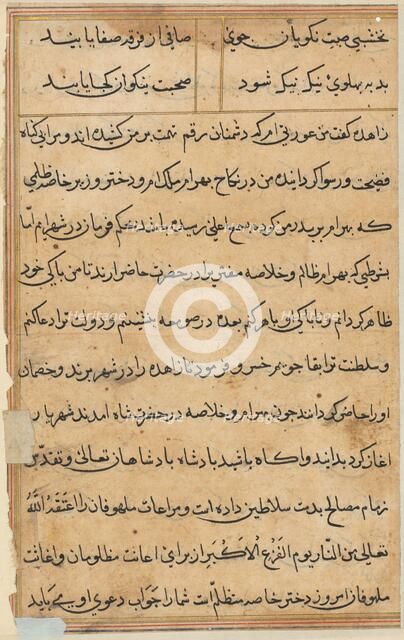 نخشبی صحبت نکویان جوی صافی از فرقد صفا یابند
بد به پهلوی نیک نیک شود صحبت نیکوان کجا یابند
زاهده گفت من عورتی ام که دشمنان رقم تهمت بر من کشیده اند و مرا بی گناه
فضیحت و رسوا گردانیده من در نکاح بهرام ملک ام و دختر وزیر خاصه ظلمی
که بهرام پدر من کرده
بشرطی که بهرام ظالم و خلاصه مفتری را در حضرت حاضر ارند تا من پاکی خود
ظاهر گردانم و ناپاکی او باهر کنم بعده در صومعه بنشینم و دولت ترا دعا کنم
و سلطنت ترا بقا جویم خسرو فرمود تا زاهده را در شهر برند و خصمان
او را حاضر گردانند چون بهرام و خلاصه در حضرت شاه امدند شهریار
اغاز کرد بدانید و اکاه باشید پادشاه پادشاهان تعالی و تقدس
زمام مصالح بدست سلاطین داده است و مراعات ملهوفان را اعتقه الله
تعالی من النار یوم الفزع الاکبر از برای اعانت مظلومان و اغاثت
ملهوفان امروز دختر خاصه متظلم است شما را جواب دعوی او می باید
heritage